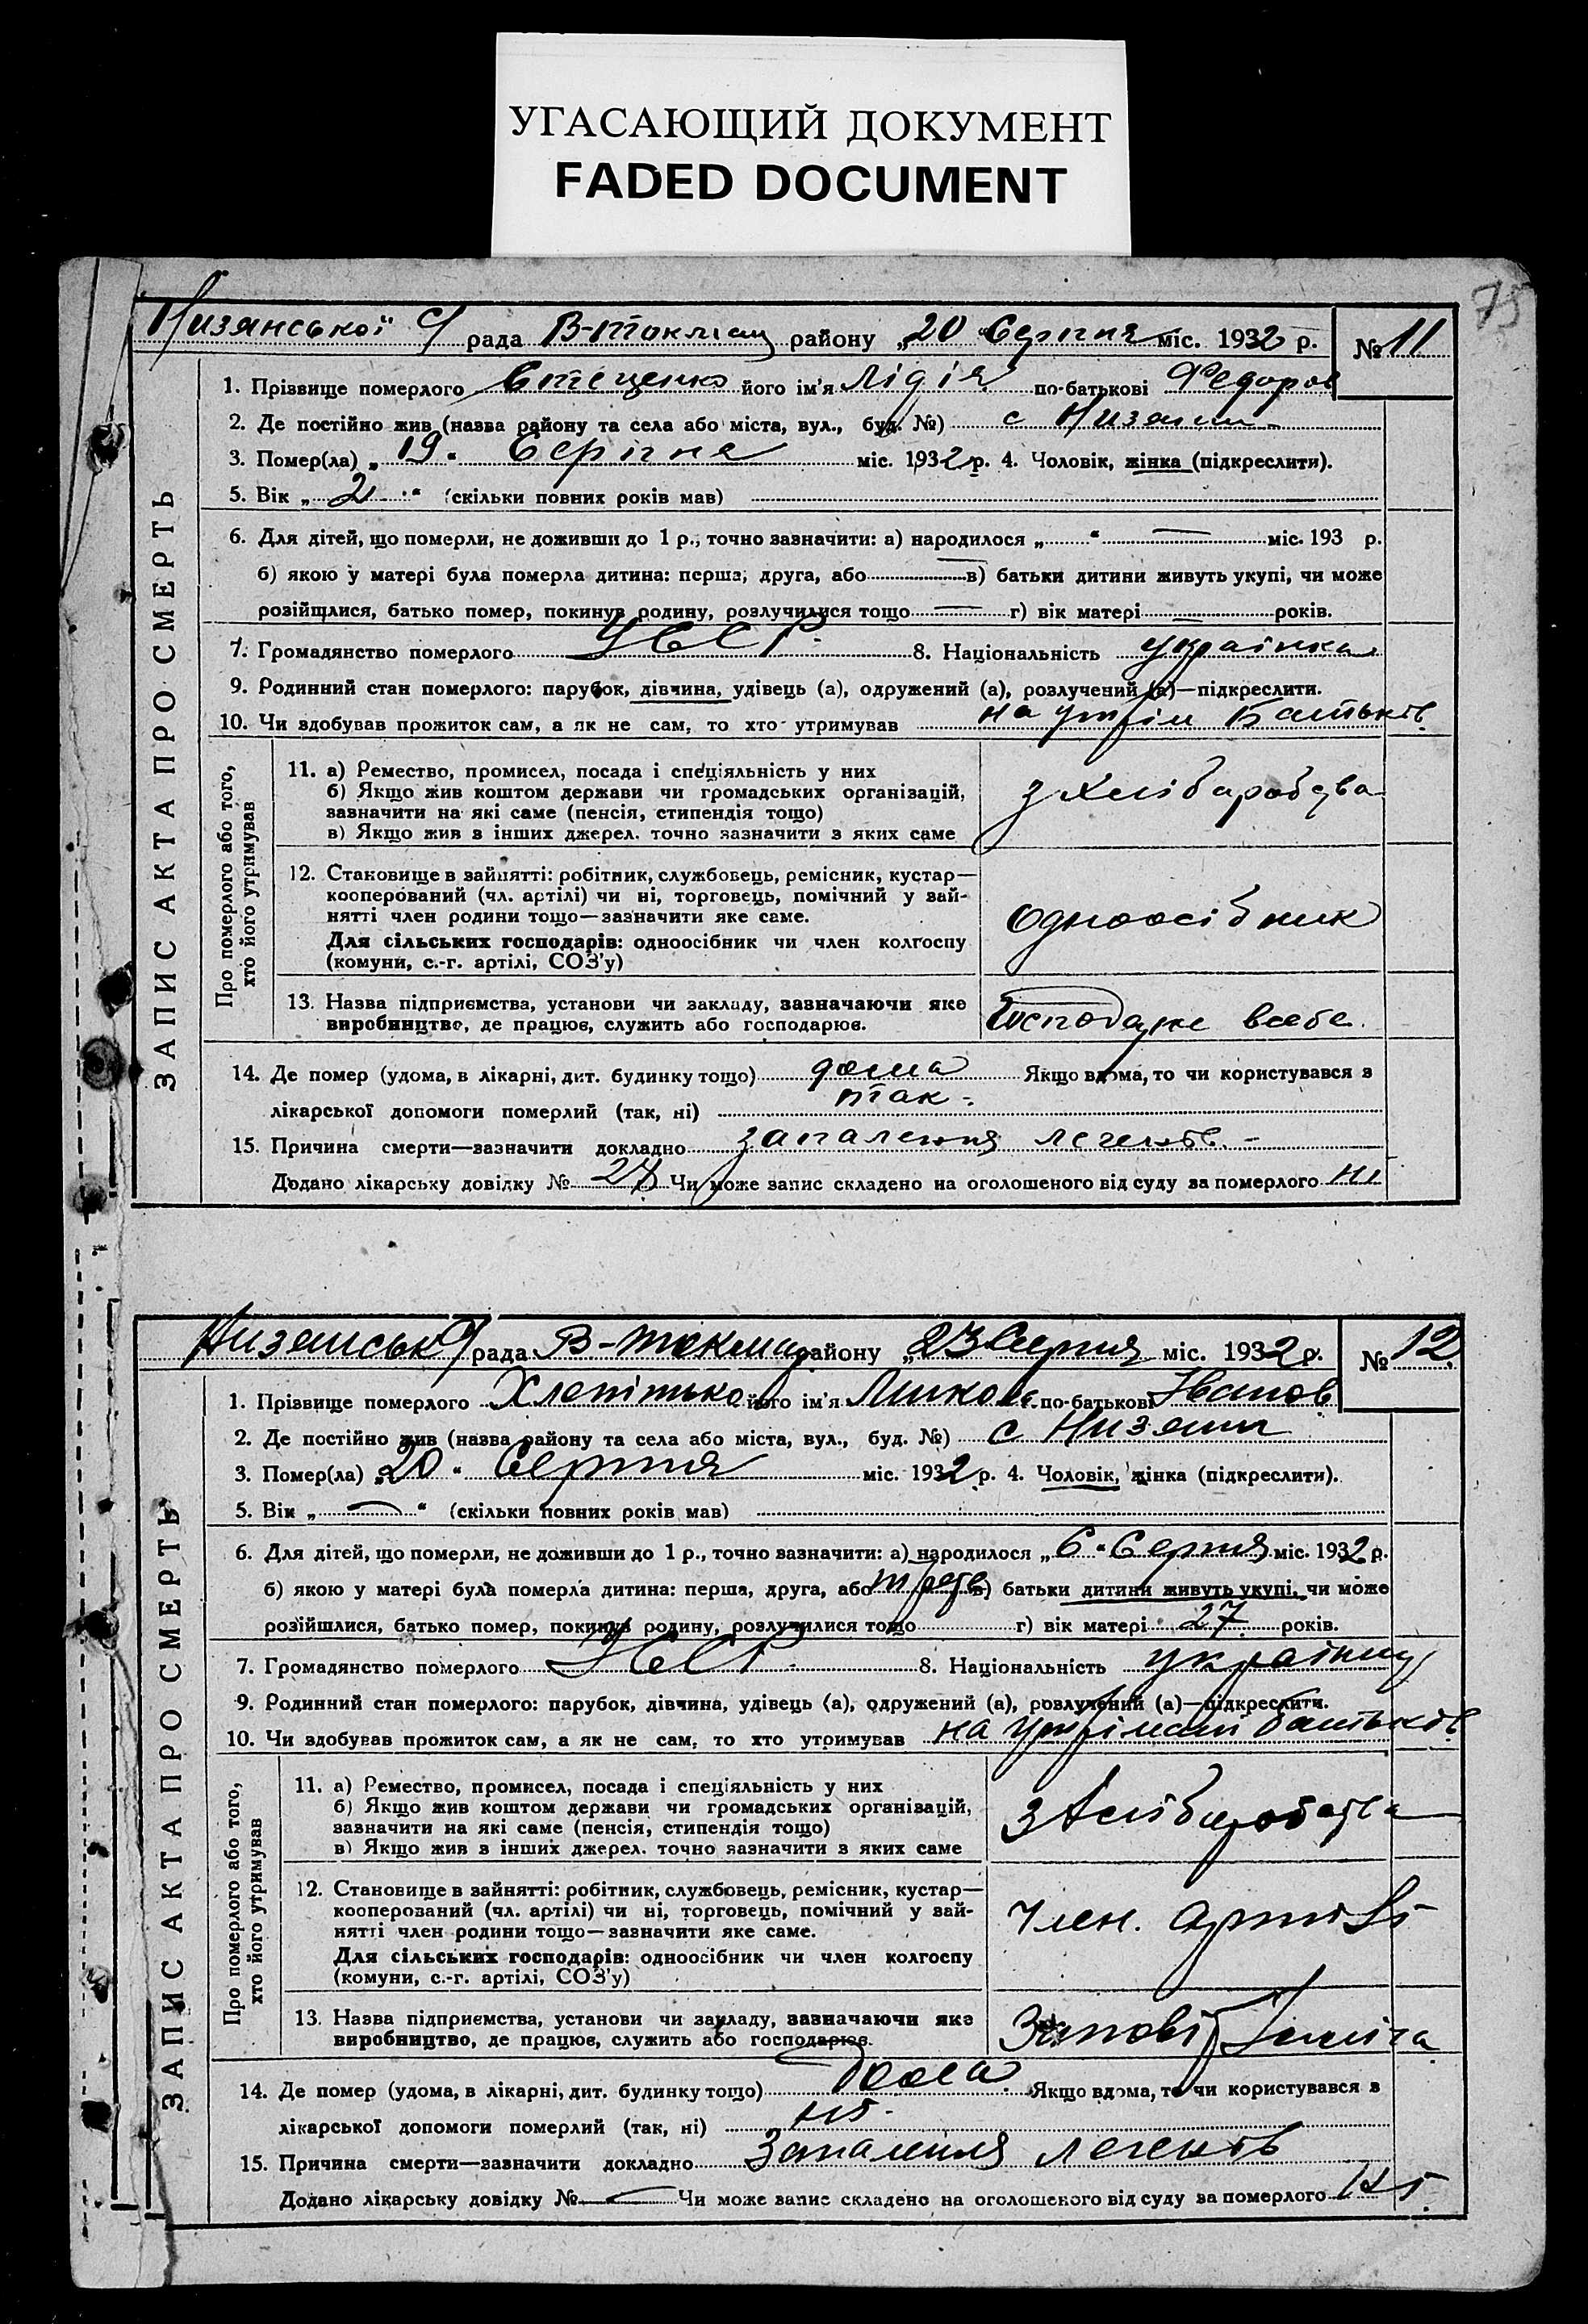 УГАСАЮЩИЙ ДОКУМЕНТ
FADED DOCUMENT
75
Низянської с/ рада В-токмац району „20 Серпня міс. 1932 р. № 11
1. Прізвище померлого Стеценко його ім'я Лідія по-батькові Федоров
2. Де постійно жив (назва району та села або міста, вул., буд. №) с Низяни
3. Помер(ла) „19" Серпня міс. 1932 р. 4. Чоловік, жінка (підкреслити).
5. Вік „2" (скільки повних років мав)
6. Для дітей, що померли, не доживши до 1 р., точно зазначити: а) народилося „ " — міс. 193 р.
б) якою у матері була померла дитина: перша, друга, або — в) батьки дитини живуть укупі, чи може
розійшлися, батько помер, покинув родину, розлучилися тощо — г) вік матері — років.
7. Громадянство померлого УССР 8. Національність українка
9. Родинний стан померлого: парубок, дівчина, удівець (а), одружений (а), розлучений (а)—підкреслити.
10. Чи здобував прожиток сам, а як не сам, то хто утримував на утрім Батьків
ЗАПИС АКТА ПРО СМЕРТЬ
Про померлого або того, хто його утримував
11. а) Ремество, промисел, посада і спеціяльність у них
б) Якщо жив коштом держави чи громадських організацій,
зазначити на які саме (пенсія, стипендія тощо)
в) Якщо жив з інших джерел. точно зазначити з яких саме
з хлібаробства
12. Становище в зайнятті: робітник, службовець, ремісник, кустар—
кооперований (чл. артілі) чи ні, торговець, помічний у зай-
нятті член родини тощо—зазначити яке саме.
Для сільських господарів: одноосібник чи член колгоспу
(комуни, с.-г. артілі, СОЗ'у)
одноосібник
13. Назва підприємства, установи чи закладу, зазначаючи яке
виробництво, де працює, служить або господарює.
Господарює всебе.
14. Де помер (удома, в лікарні, дит. будинку тощо) дома Якщо вдома, то чи користувався з
лікарської допомоги померлий (так, ні) так
15. Причина смерти—зазначити докладно запалення легенів
Додано лікарську довідку № 27 Чи може запис складено на оголошеного від суду за померлого ні
Низянськ с/ рада В-токмац району „23 Серпня міс. 1932 р. № 12
1. Прізвище померлого його ім'я Микола по-батькові Іванов
2. Де постійно жив (назва району та села або міста, вул., буд. №) с Низяни
3. Помер(ла) „20" Серпня міс. 1932 р. 4. Чоловік, жінка (підкреслити).
5. Вік „—" (скільки повних років мав)
6. Для дітей, що померли, не доживши до 1 р., точно зазначити: а) народилося „6" Серпня міс. 1932 р.
б) якою у матері була померла дитина: перша, друга, або третя в) батьки дитини живуть укупі, чи може
розійшлися, батько помер, покинув родину, розлучилися тощо г) вік матері 27 років.
7. Громадянство померлого УССР 8. Національність українец
9. Родинний стан померлого: парубок, дівчина, удівець (а), одружений (а), розлучений (а)—підкреслити.
10. Чи здобував прожиток сам, а як не сам, то хто утримував на утрімані батьків
ЗАПИС АКТА ПРО СМЕРТЬ
Про померлого або того, хто його утримував
11. а) Ремество, промисел, посада і спеціяльність у них
б) Якщо жив коштом держави чи громадських організацій,
зазначити на які саме (пенсія, стипендія тощо)
в) Якщо жив з інших джерел. точно зазначити з яких саме
з хлібаробства
12. Становище в зайнятті: робітник, службовець, ремісник, кустар—
кооперований (чл. артілі) чи ні, торговець, помічний у зай-
нятті член родини тощо—зазначити яке саме.
Для сільських господарів: одноосібник чи член колгоспу
(комуни, с.-г. артілі, СОЗ'у)
член. артілі
13. Назва підприємства, установи чи закладу, зазначаючи яке
виробництво, де працює, служить або господарює.
Заповіт Ілліча
14. Де помер (удома, в лікарні, дит. будинку тощо) дома Якщо вдома, то чи користувався з
лікарської допомоги померлий (так, ні) ні
15. Причина смерти—зазначити докладно Запалення легенів
Додано лікарську довідку № — Чи може запис складено на оголошеного від суду за померлого ні